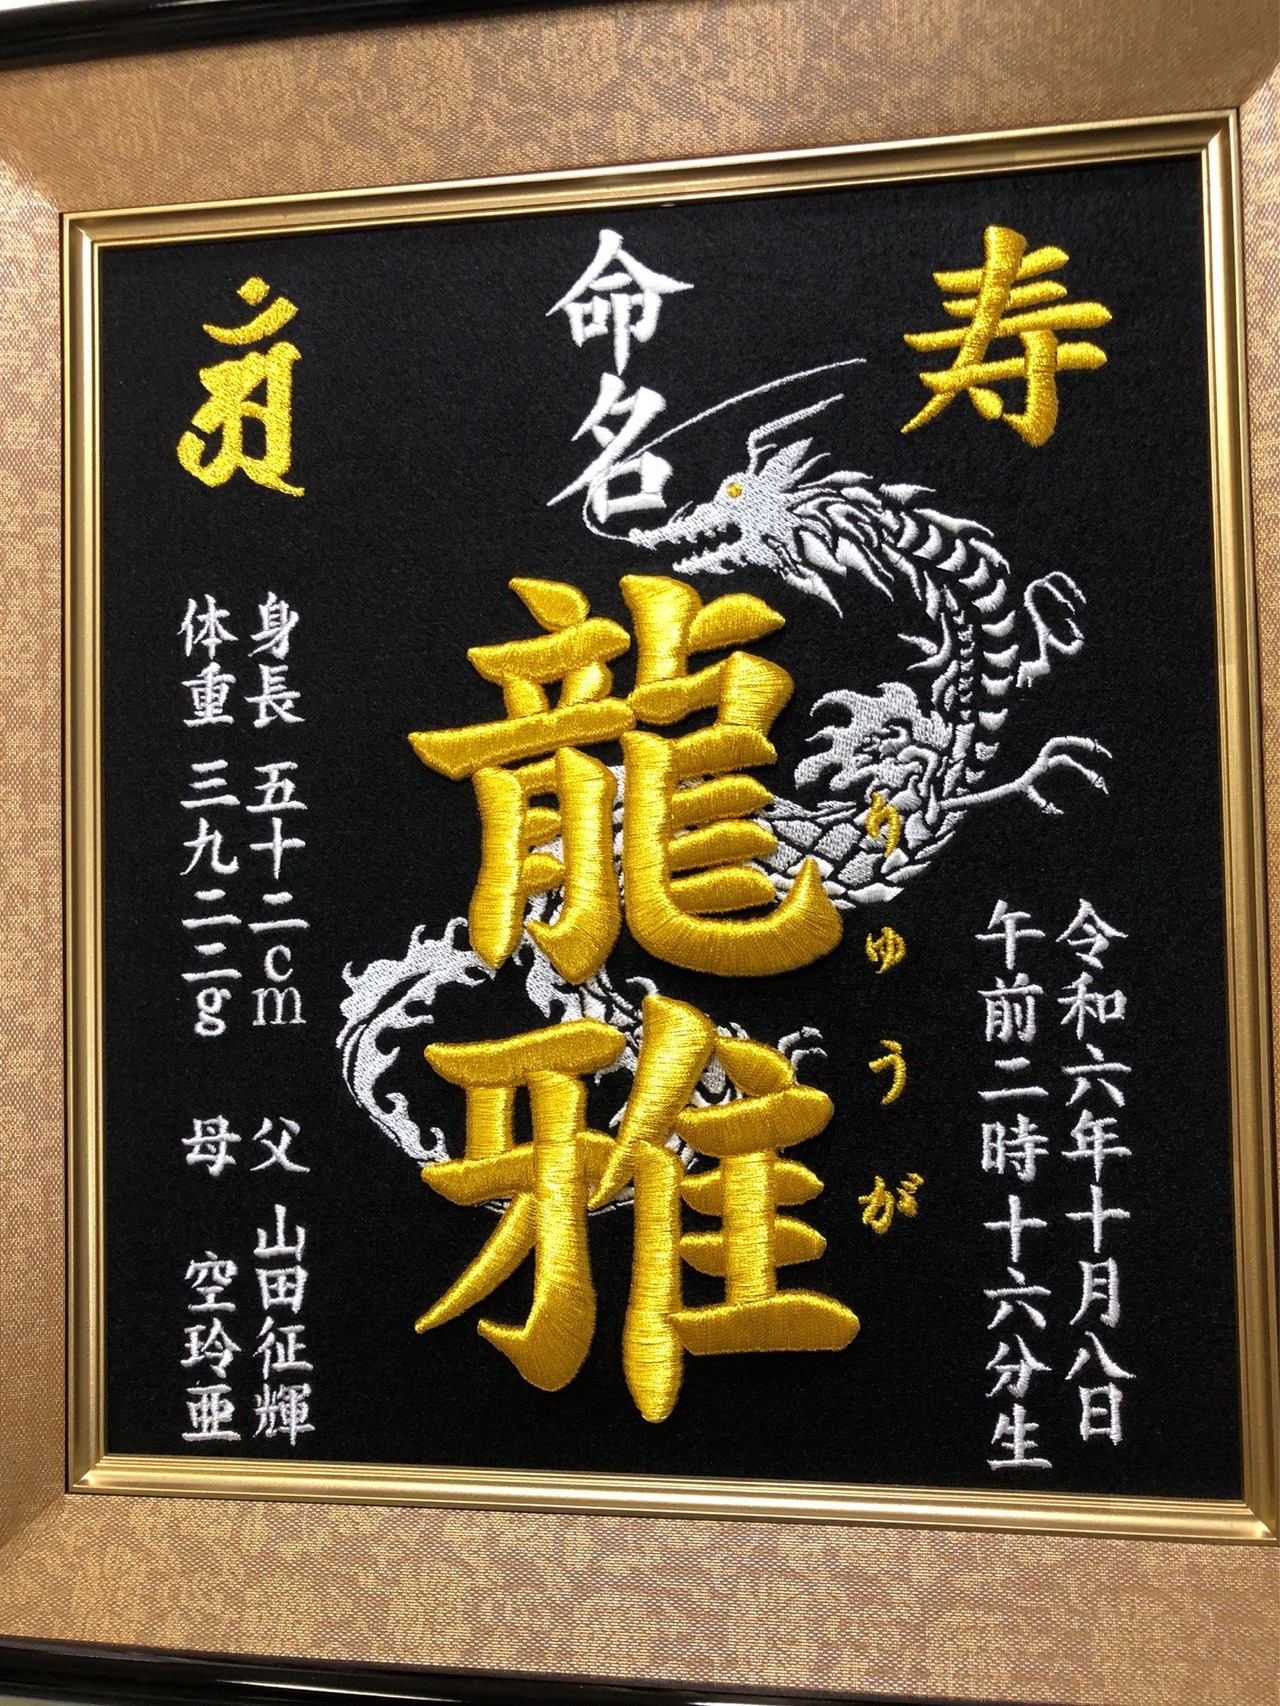 寿
命名
龍雅
りゅうが
令和六年十月八日
午前二時十六分生
身長 五十二cm 父 山田征輝
体重 三九二二g 母 空玲亜